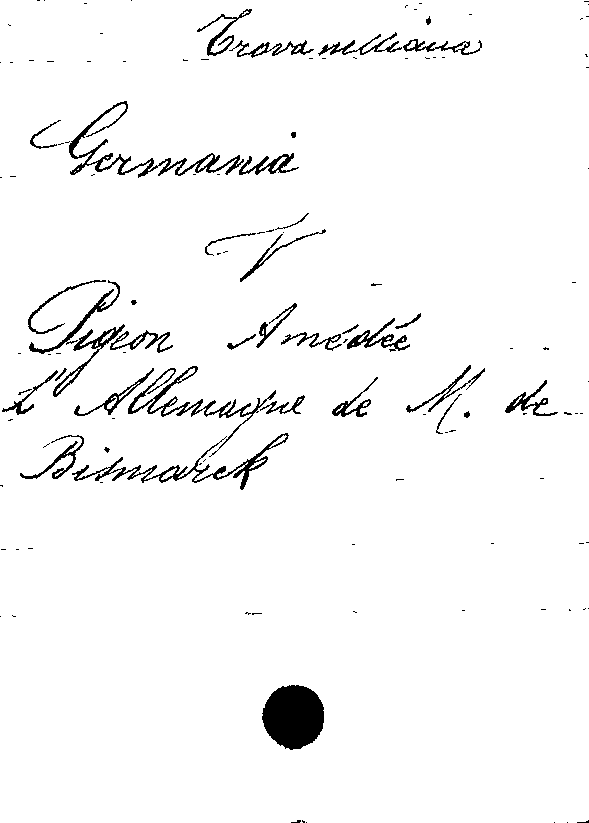 Trovanelliana
Germania
V
Pigeon Amédée
L'Allemagne de M. de
Bismarck